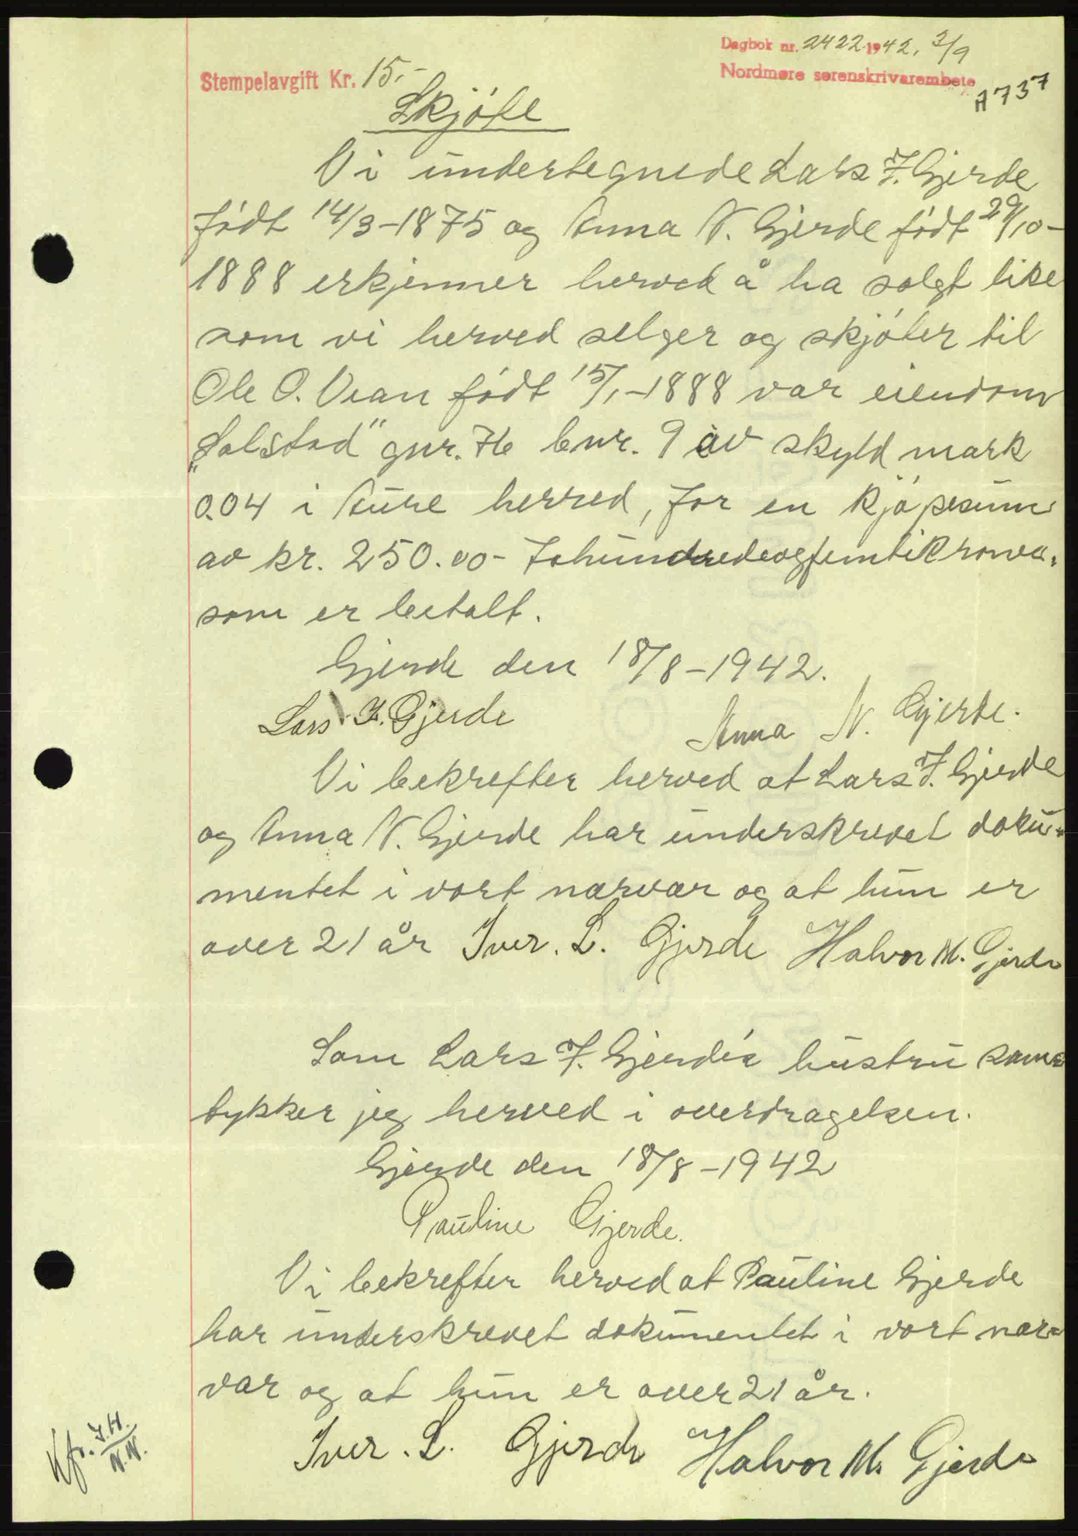 Dagbok nr. 2422 1942, 3/9
Stempelavgift Kr. 15.-
Nordmøre sorenskrivarembete
A737
Skjøte
Vi undertegnede Lars F. Gjerde
født 14/3-1875 og Anna N. Gjerde født 29/10-
1888 erkjenner herved å ha solgt like
som vi herved selger og skjøter til
Ole O. Vean født 15/1-1888 vår eiendom
„Solstad" gnr. 76 bnr. 9 av skyld mark
0.04 i Aure herred, for en kjøpesum
av kr. 250.00- Tohundredeogfemtikroner.
som er betalt.
Gjerde den 18/8-1942.
Lars F. Gjerde
Anna N. Gjerde.
Vi bekrefter herved at Lars F. Gjerde
og Anna N. Gjerde har underskrevet doku-
mentet i vort nærvær og at hun er
over 21 år Iver. L. Gjerde Halvor M. Gjerde
Som Lars F. Gjerde's hustru sam-
tykker jeg herved i overdragelsen.
Gjerde den 18/8-1942
Pauline Gjerde.
Vi bekrefter herved at Pauline Gjerde
har underskrevet dokumentet i vort nær-
vær og at hun er over 21 år.
Iver. L. Gjerde Halvor M. Gjerde
Kfr. I.H.
N.N.